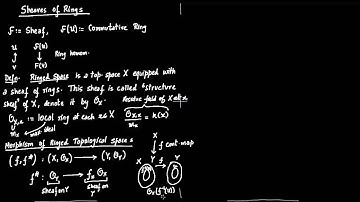 Sheaves of Rings
F := Sheaf, F(U) := Commutative Ring
U F(U)
↑ ↓ Ring homom.
V F(V)
Defn. Ringed Space is a top. space X equipped with
a sheaf of rings. This sheaf is called "structure
sheaf" of X, denote it by O_X. Residue field of X at x
O_{X,x} := local ring at each x ∈ X O_{X,x}/m_x = k(x)
m_x ideal
Morphism of Ringed Topological spaces
(f, f^#) : (X, O_X) → (Y, O_Y)
f^# : O_Y → f_* O_X
sheaf on Y sheaf on Y
X
↓ f cont. map
Y
X f Y
O_X(f^{-1}(U))